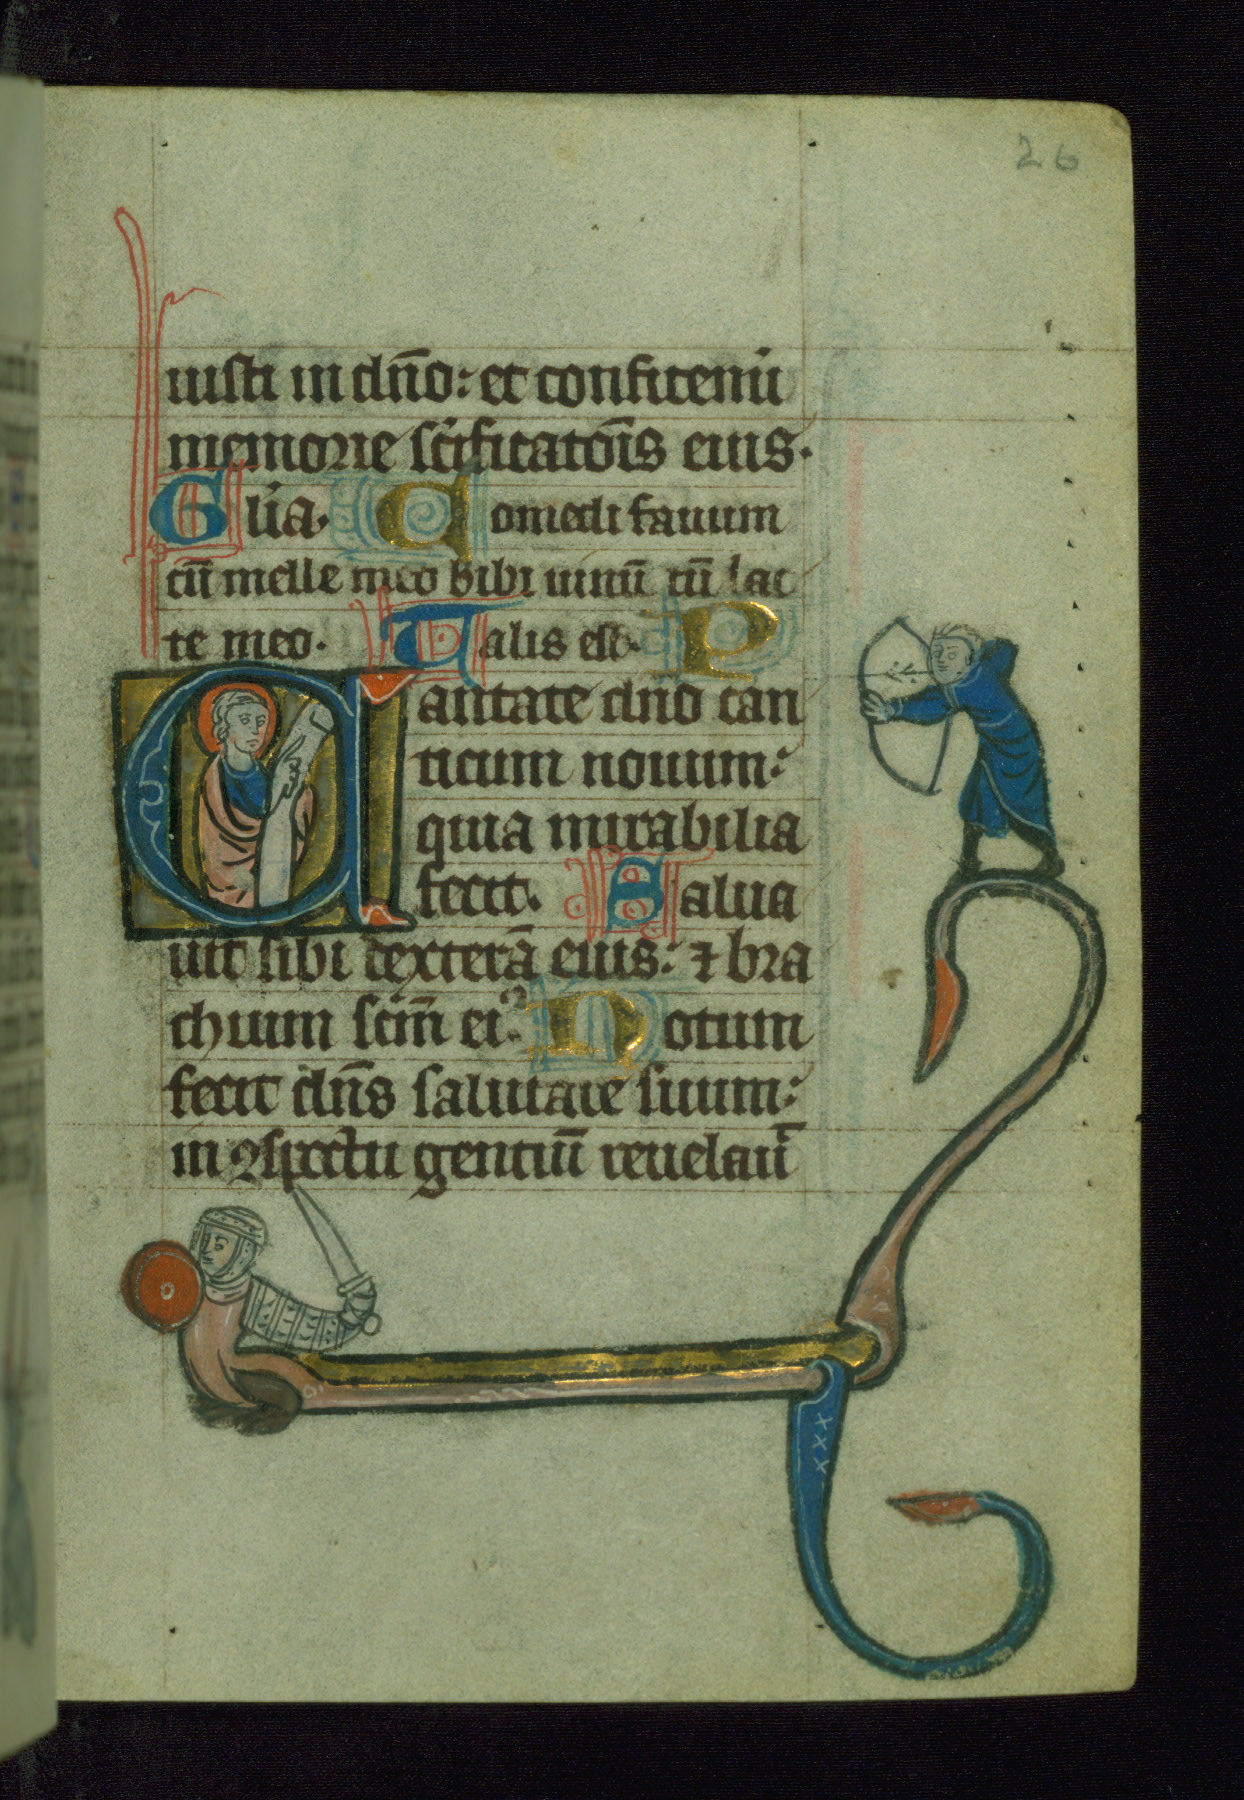 26
iusti in dn̄o: et confitemi̍
memorie sc̄ificatōis eius.
Gli̍a. Comedi fauum
cū melle meo bibi uinū cū lac
te meo. Talis est. P
Cantate dn̄o can
ticum nouum:
quia mirabilia
fecit. Salua
uit sibi dexterā eius: ⁊ bra
chium scm̄ ei᾿. Notum
fecit dn̄s salutare suum:
in ꝯspectu gentiū reuelauı̄